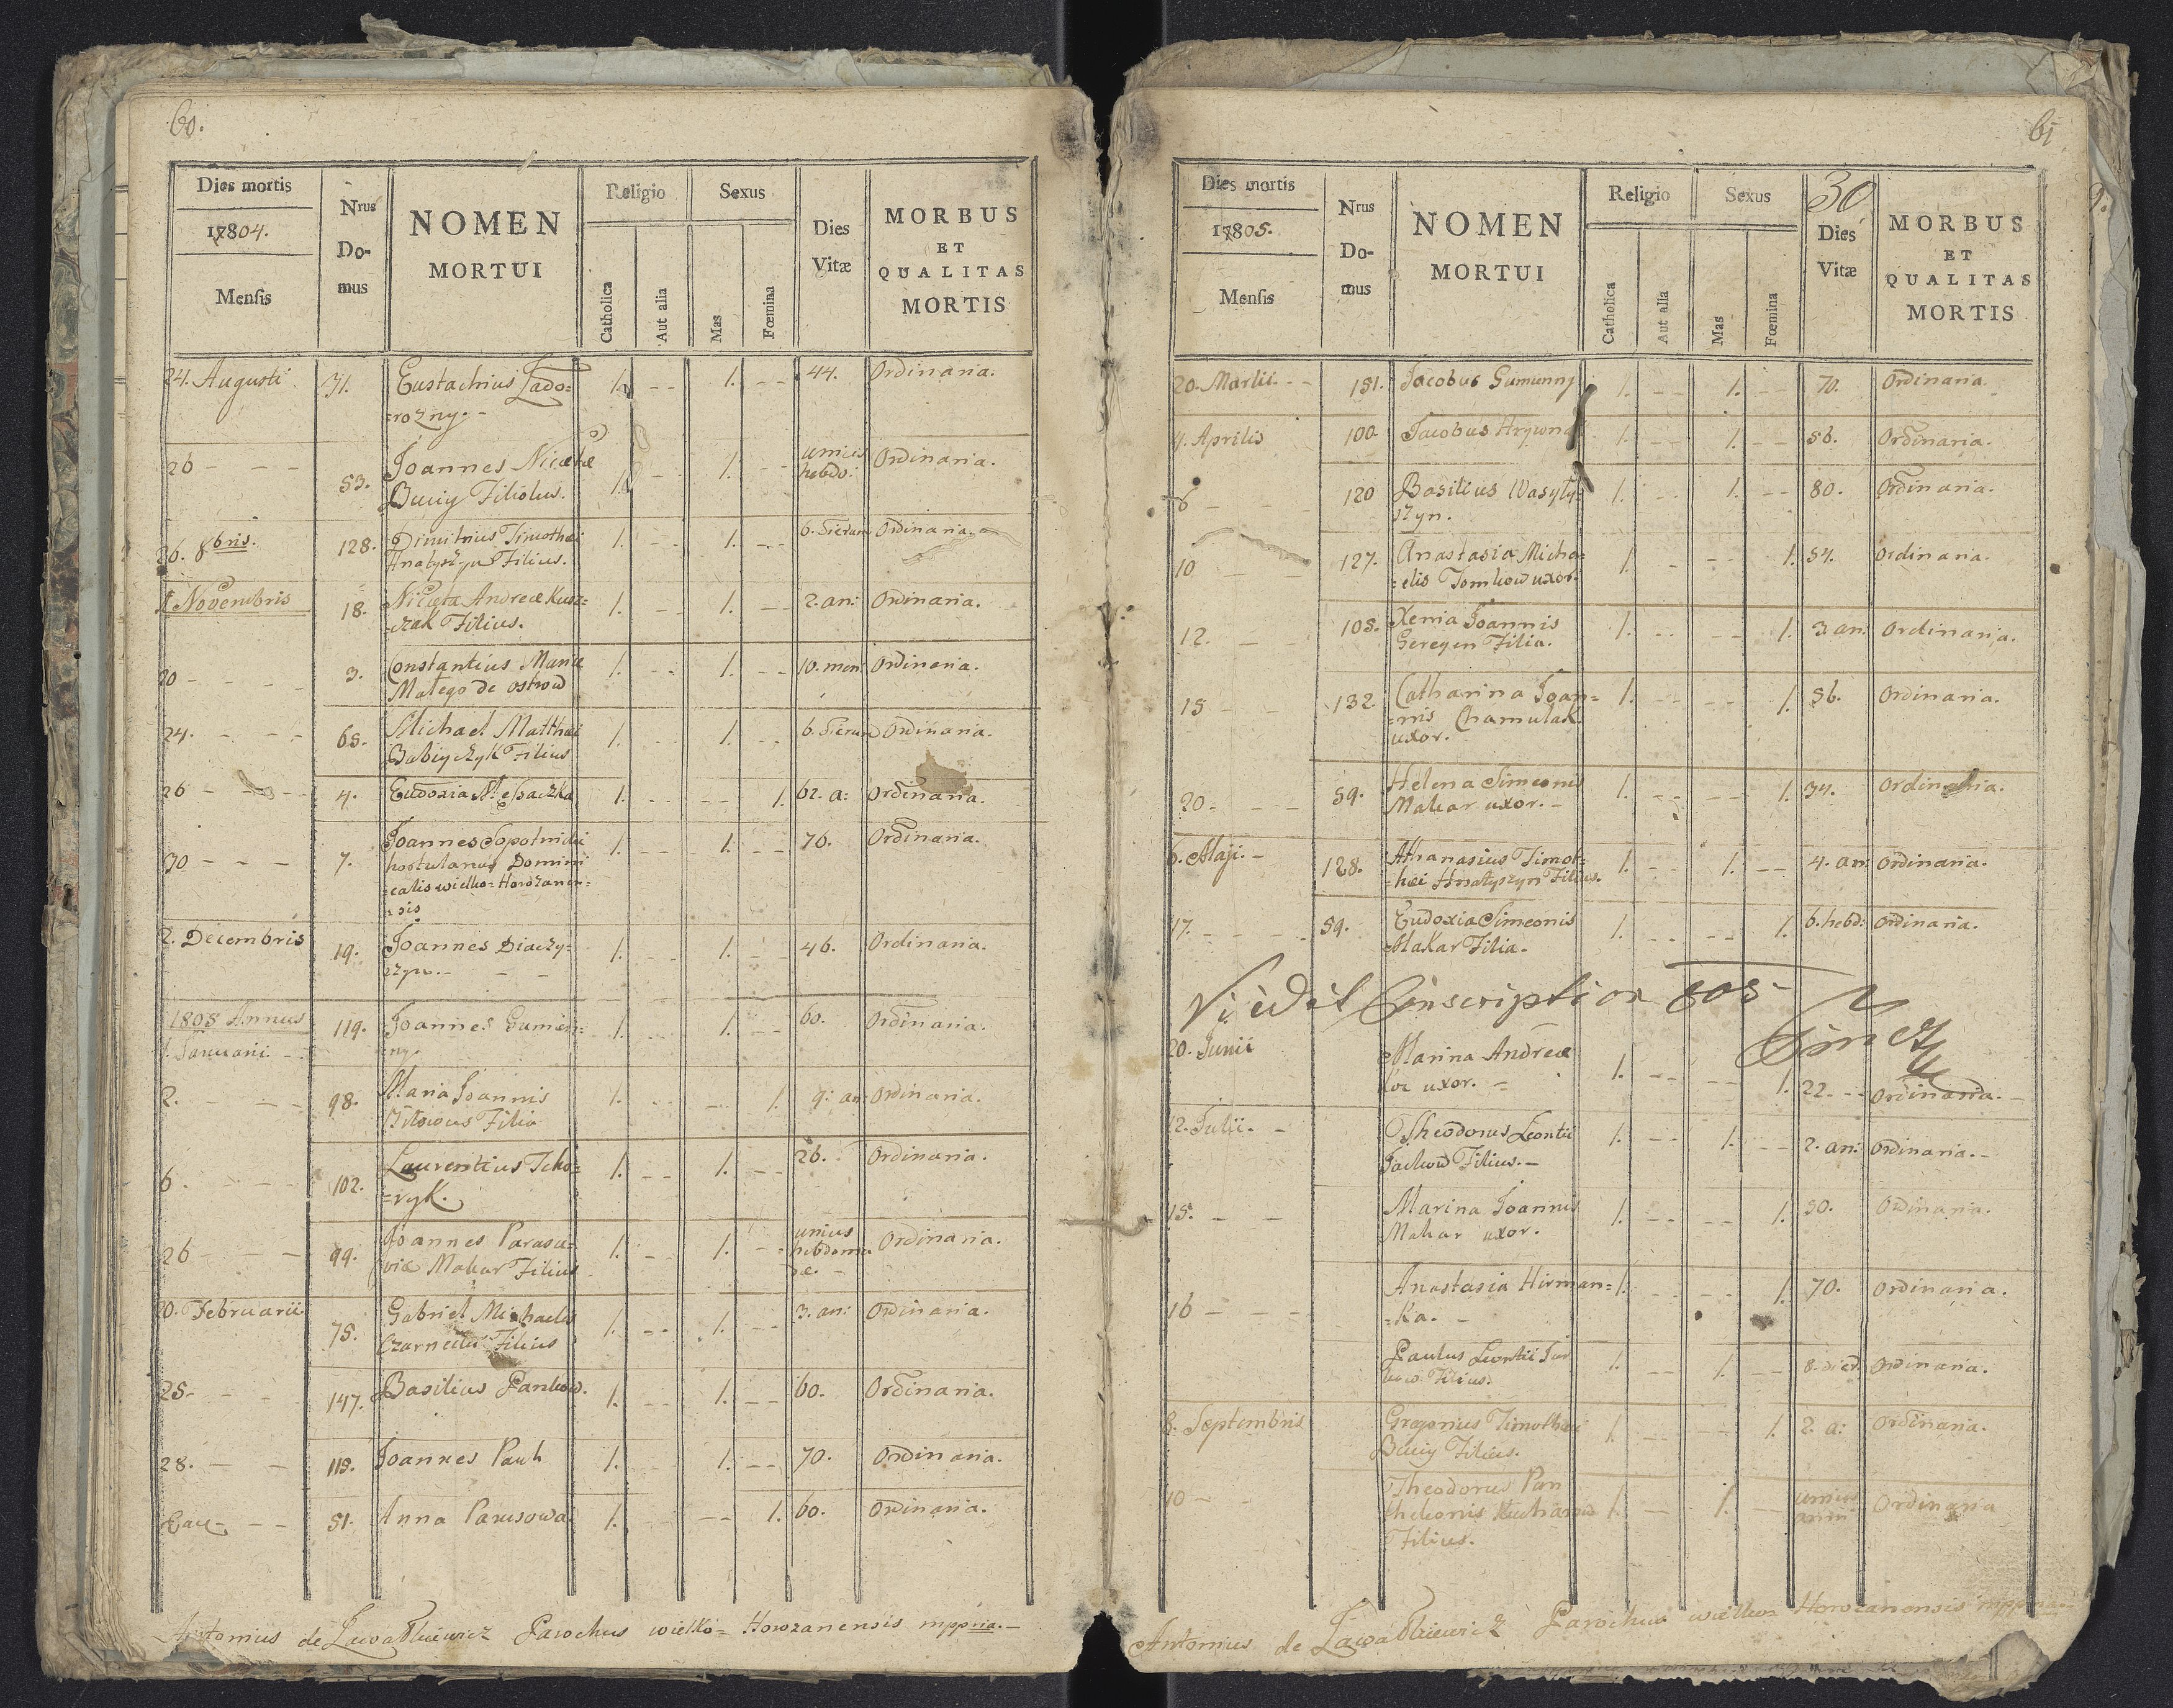 60.
Dies mortis
17804.
Mensis
Nrus
Do-
mus
NOMEN
MORTUI
Religio
Catholica
Aut alia
Sexus
Mas
Fœmina
Dies
Vitæ
MORBUS
ET
QUALITAS
MORTIS
24. Augusti 31. Eustachius Zado= 1. -- 1. -- 44. Ordinaria.
=rozny. -
26 - - - 53. Joannes Nicetæ 1. - 1. -- unius Ordinaria.
Buciy Filiolus. hebdo:
26. 8bris. 128. Dimitrius Timothei 1. -- 1. -- 6. Dierum Ordinaria.
Hnatyszyn Filius.
1 Novembris 18. Nicæta Andreæ Kucz= 1. -- 1. -- 2. an: Ordinaria.
=czak Filius.
20 - - - - 3. Constantius Mariæ 1. -- 1. -- 10. men: Ordinaria.
Matego de ostrow
24. - - - 65. Michael Matthæi 1. -- 1. -- 6. Dierum Ordinaria.
Babiyczyk Filius
26 - - - 4. Eudoxia 1. -- -- 1. 62. a: Ordinaria.
30 - - - 7. Joannes Sopotnicki 1. -- 1. -- 76. Ordinaria.
hortulanus Domini
=calis wielko=Horozanen=
=sis
2. Decembris 19. Joannes Diaczy= 1. -- 1. -- 46. Ordinaria.
szyn. - - -
1805 Annus 119. Joannes Gumien= 1. -- 1. -- 60. Ordinaria.
1. Januarii. - =ny.
2. - - - 98. Maria Joannis 1. -- -- 1. 9: an: Ordinaria.
Filia
6. - - - 102. Laurentius Tcho= 1. -- 1. -- 26. Ordinaria.
=ryk.
26 - - - 99. Joannes Parasce= 1. -- 1. -- unius Ordinaria.
viæ Makar Filius hebdoma
dæ. -
20. Februarii 75. Gabriel Michaelis 1. -- 1. -- 3. an: Ordinaria.
Czarnecki Filius
25- - - 147. Basilius Pankow. 1. -- 1. -- 60. Ordinaria.
28. - - 115. Joannes Pauk 1. -- 1. -- 70. Ordinaria.
Ead - - 51. Anna Parusowa 1. -- 1. 60. Ordinaria.
Antonius de Parochus wielko= Horozanensis mppria. -
61
Dies mortis
17805.
Mensis
Nrus
Do-
mus
NOMEN
MORTUI
Religio
Catholica
Aut alia
Sexus
Mas
Fœmina
30
Dies
Vitæ
MORBUS
ET
QUALITAS
MORTIS
20. Martii. - - 151. Jacobus Gumunny 1. -- 1. -- 70. Ordinaria.
4. Aprilis 100 Jacobus Hrywna 1. -- 1. -- 56. Ordinaria.
6 - - 120 Basilius Wasyly= 1. -- 1. -- 80. Ordinaria.
szyn.
10 - - 127. Anastasia Micha= 1. - -- 1. 54. Ordinaria.
=elis Tomkow uxor.
12. - 105. Xenia Joannis 1. -- -- 1. 3 an: Ordinaria.
Geregen Filia.
15 - - 132. Catharina Joan= 1. -- -- 1. 56. Ordinaria.
=nis Chamulak
uxor.
20- - - 59. Helena Simeonis 1. -- -- 1. 34. Ordinaria.
Makar uxor. -
6. Maji. - 128. Athanasius Timot= 1. -- 1. -- 4. an: Ordinaria.
=hei Hnatyszyn Filius.
17. - - - 59. Eudoxia Simeonis 1. -- -- 1. 6. hebd: Ordinaria.
Makar Filia.
Vidit Conscription 805
20. Junii Marina Andreæ 1. -- -- 1. 22. -- Ordinaria. -
Koz uxor. -
12. Julii. - Theodorus Leontii 1. -- 1. -- 2. an: Ordinaria. -
Jackow Filius. -
15. - - Marina Joannis 1. -- -- 1. 30. Ordinaria.
Makar uxor.
16 - - - Anastasia Hirman= 1. -- -- 1. 70. Ordinaria.
=ka. -
Paulus Leontii Jac 1. -- 1. -- 8. dier. Ordinaria.
kow Filius.
8. Septembris Gregorius Timothæi 1. -- -- 1. 2. a: Ordinaria.
Buciy Filius.
10 - - Theodorus Pan 1. -- 1. -- unius Ordinaria
theleonis Kucharow anni
Filius.
Antonius de Parochus wielko= Horozanensis mppria.